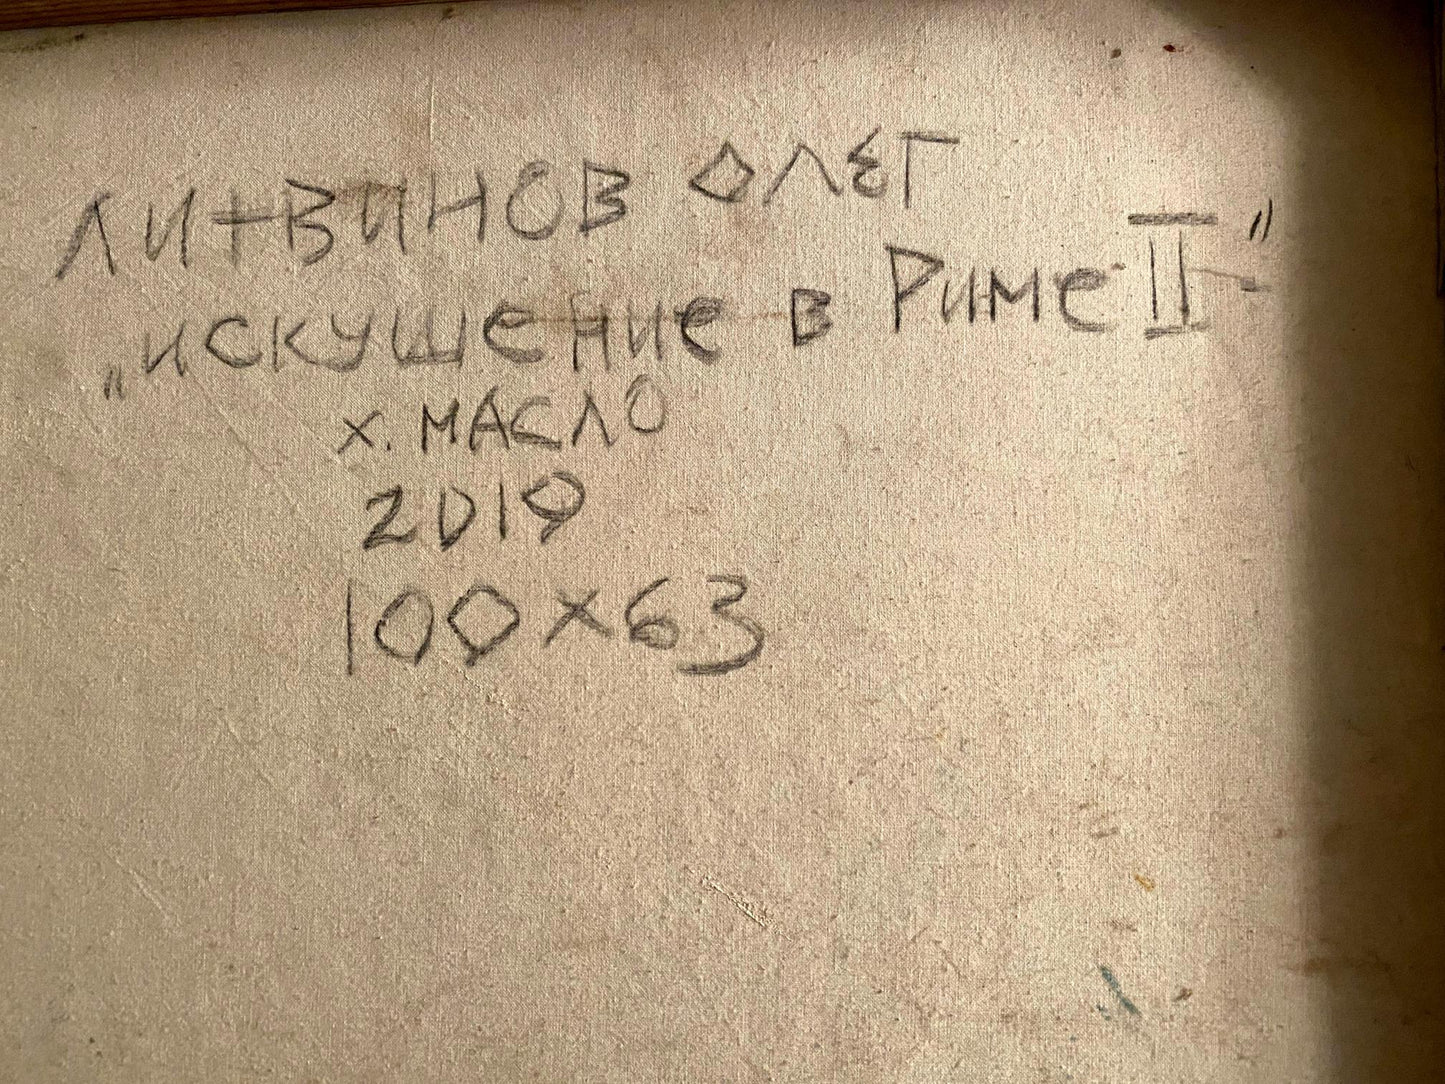 ЛИТВИНОВ ОЛЕГ
„ИСКУШЕНИЕ В РИМЕ II"
Х. МАСЛО
2019
100×63